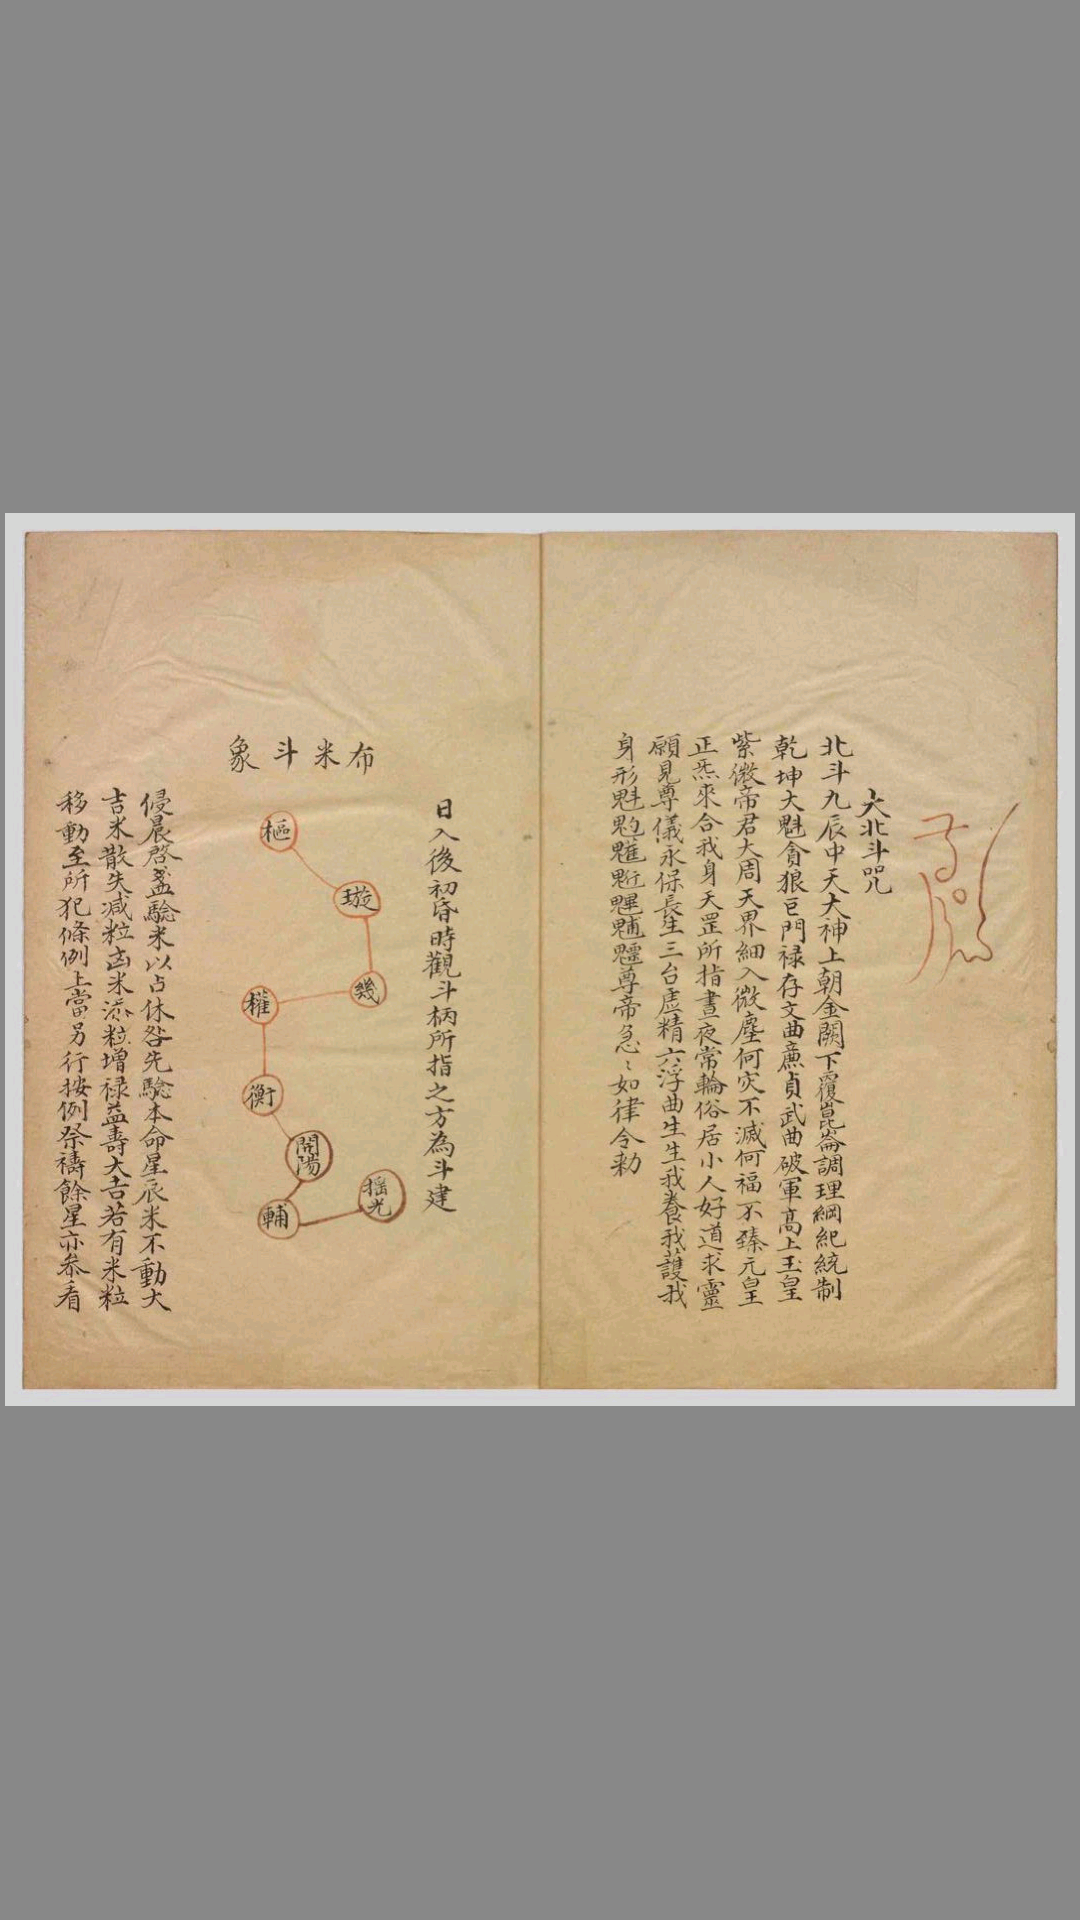 大北斗咒
北斗九辰中天大神上朝金闕下覆崑崙調理綱紀統制
乾坤大魁貪狼巨門禄存文曲廉貞武曲破軍高上玉皇
紫微帝君大周天界細入微塵何灾不滅何福不臻元皇
正炁來合我身天罡所指晝夜常輪俗居小人好道求靈
願見尊儀永保長生三台虚精六淳曲生生我養我護我
身形魁𩲃䰢魓䰨魒尊帝急〻如律令勅
布米斗象
日入後初昏時觀斗柄所指之方為斗建
樞
璇
幾
權
衡
開陽
輔
摇光
侵晨啓盞驗米以占休咎先驗本命星辰米不動大
吉米散失减粒凶米添粒增禄益壽大吉若有米粒
移動至所犯條例上當另行按例祭禱餘星亦叅看